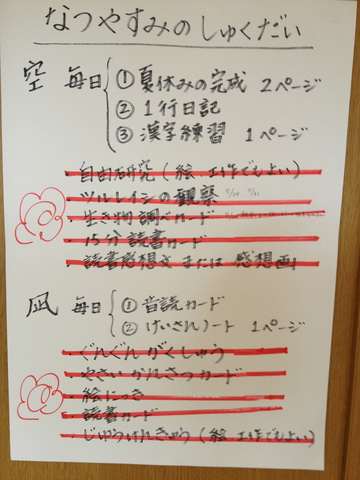 なつやすみのしゅくだい
空 毎日 ①夏休みの完成 2ページ
②1行日記
③漢字練習 1ページ
自由研究(絵 工作でもよい)
ツルレイシの観察
生き物調べカード
15分読書カード
読書感想文 または 感想画
凪 毎日 ①音読カード
②けいさんノート 1ページ
ぐんぐん がくしゅう
やさい かんさつカード
絵にっき
読書カード
じゆうけんきゅう(絵 工作でもよい)